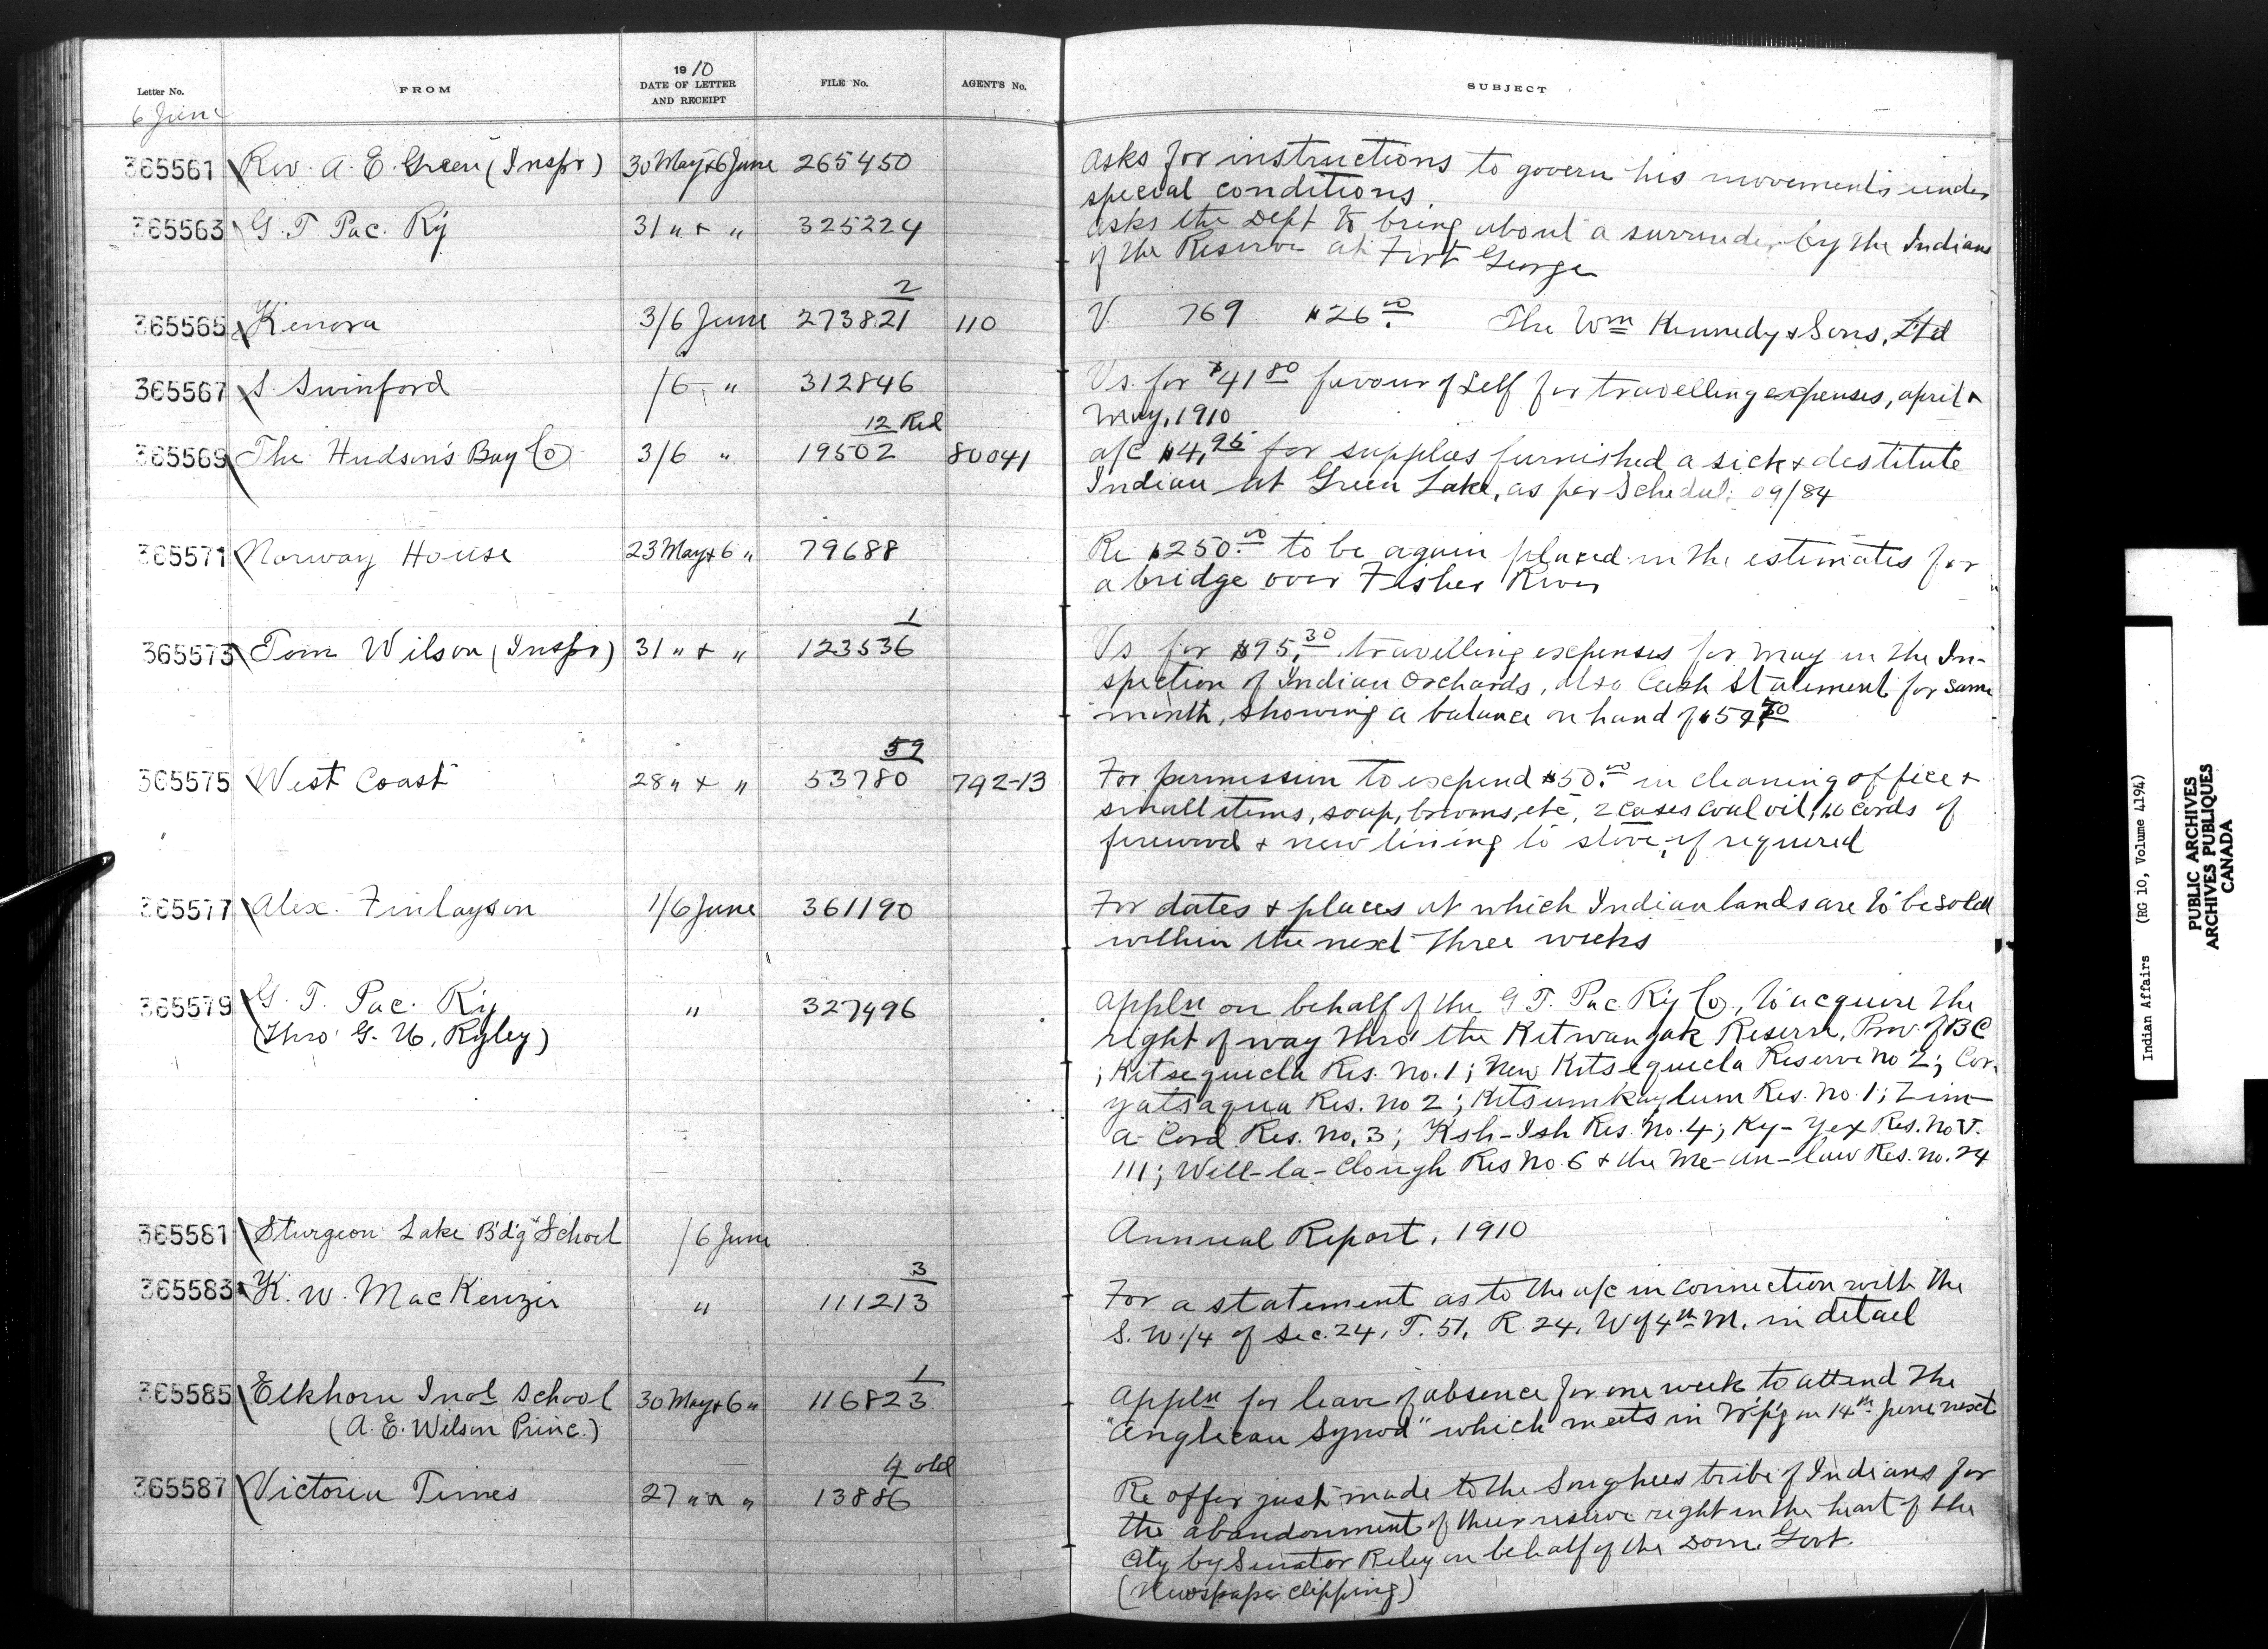 1910
Letter No. FROM DATE OF LETTER AND RECEIPT FILE No. AGENT'S No. SUBJECT
6 June
365561 Rev. A. E. Green (Inspr) 30 May & 6 June 265450 Asks for instructions to govern his movements under
special conditions
365563 G. T. Pac. Ry 31 " & " 325224 Asks the Dept to bring about a surrender by the Indians
of the Reserve at Fort George
365565 Kenora 3/6 June 273821 2 110 V. 769 $26.00 The Wm Kennedy & Sons, Ltd
365567 S. Swinford /6 " 312846 Vs. for $41.80 favour of Self for travelling expenses, April &
May, 1910
365569 The Hudson's Bay Co 3/6 " 19502 12 Red 80041 a/c $4.95 for supplies furnished a sick & destitute
Indian at Green Lake, as per Schedule 09/84
365571 Norway House 23 May & 6 " 79688 Re $250.00 to be again placed in the estimates for
a bridge over Fisher River
365573 Tom Wilson (Inspr) 31 " & " 123536 1 Vs for $95.30 travelling expenses for May in the In-
spection of Indian Orchards, also Cash Statement for same
month, showing a balance on hand of
365575 West Coast 28 " & " 53780 59 792-13 For permission to expend $50.00 in cleaning office &
small items, soap, brooms, etc, 2 cases coal oil, 10 cords of
firewood & new lining to stove, if required
365577 Alex. Finlayson 1/6 June 361190 For dates & places at which Indian lands are to be sold
within the next three weeks
365579 G. T. Pac. Ry " 327496 Appln on behalf of the G. T. Pac Ry Co., to acquire the
(Thro' G. U. Ryley) right of way thro' the Kitwangak Reserve, Prov. of BC
; Kitsequecla Res. No. 1; New Kitsequecla Reserve No 2; Cor-
yatsaqua Res. No 2; Kitsumkaylum Res. No. 1; Zim-
a-Cord Res. No. 3; Ksh-Ish Res. No. 4; Ky-Yex Res. No
111; Will-la-Clough Res No. 6 & the Me-an-law Res. No. 24
365581 Sturgeon Lake B'd'g School /6 June Annual Report, 1910
365583 K. W. MacKenzie " 111213 3 For a statement as to the a/c in connection with the
S. W. 1/4 of Sec. 24, T. 51, R. 24, W of 4th M. in detail
365585 Elkhorn Indl School 30 May & 6 " 116823 1 Appln for leave of absence for one week to attend the
(A. E. Wilson Princ.) "Anglican Synod" which meets in W'p'g on 14th June next
365587 Victoria Times 27 " & " 13886 4 old Re offer just made to the Songhees tribe of Indians for
the abandonment of their reserve right in the heart of the
City by Senator Riley on behalf of the Dom. Govt.
(Newspaper clipping)
Indian Affairs (RG 10, Volume 4194)
PUBLIC ARCHIVES
ARCHIVES PUBLIQUES
CANADA